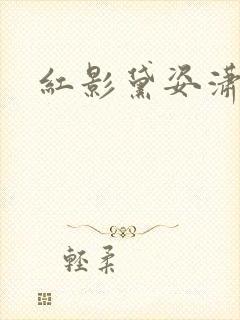 紅影黛姿瀟
輕柔